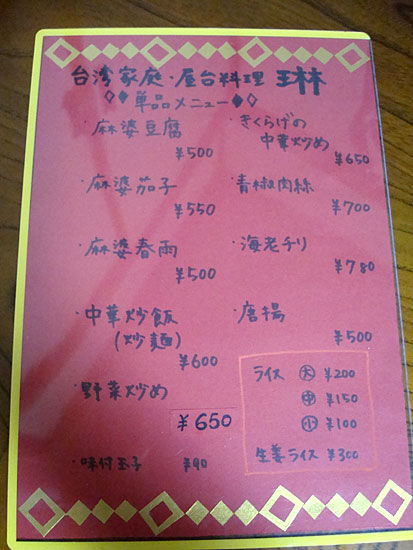 台湾家庭・屋台料理 琳
単品メニュー
・麻婆豆腐
¥500
・麻婆茄子
¥550
・麻婆春雨
¥500
・中華炒飯
(炒麺)
¥600
・野菜炒め
¥650
・味付玉子 ¥90
・きくらげの
中華炒め
¥650
・青椒肉絲
¥700
・海老チリ
¥780
・唐揚
¥500
ライス 大 ¥200
中 ¥150
小 ¥100
生姜ライス ¥300